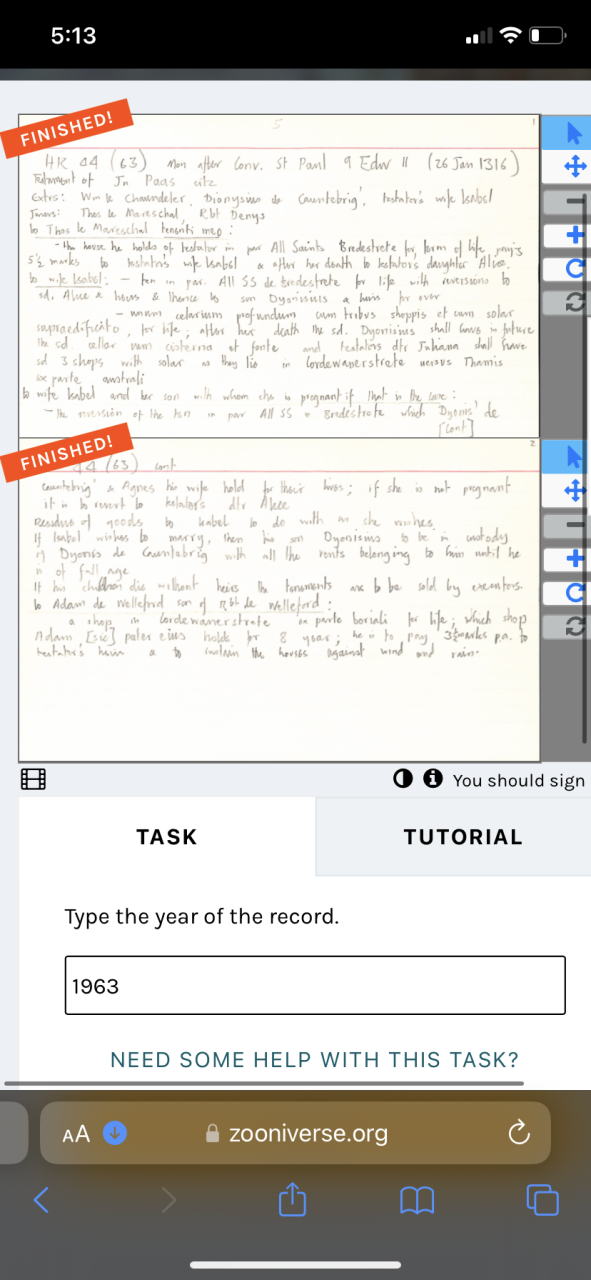 5:13
FINISHED!
5
1
HR 44 (63) Mon after Conv. St Paul 9 Edw II (26 Jan 1316)
Testament of Jn Paas citz
Extrs: Wm le Chaundeler, Dionysius de Cauntebrig', testator's wife Isabel
Thos le Mareschal, Rbt Denys
to Thos le Mareschal tenenti meo:
- the house he holds of testator in par All Saints Bredestrete for term of life, pays
5½ marks to testator's wife Isabel & after her death to testator's daughter Alice.
to wife Isabel: - ten in par. All SS de Bredestrete for life with reversions to
sd. Alice & heirs & thence to son Dyonisius & heirs for ever
- unum celarium profundum cum tribus shoppis et cum solar
supraedificato, for life; after her death the sd. Dyonisius shall have in future
the sd. cellar cum cisterna et fonte and testators dtr Juliana shall have
sd 3 shops with solar as they lie in Cordewanerstrete versus Thamis
ex parte australi
to wife Isabel and her son with whom she is pregnant if that is the case:
- the reversion of the ten in par All SS Bredestrete which Dyonis' de
[cont]
FINISHED!
2
44 (63) cont
Cauntebrig' & Agnes his wife hold for their lives; if she is not pregnant
it is to revert to testators dtr Alice
Residue of goods to Isabel to do with as she wishes.
If Isabel wishes to marry, then his son Dyonisius to be in custody
of Dyonis de Cauntebrig with all the rents belonging to him until he
is of full age
If his children die without heirs the tenements are to be sold by executors.
to Adam de Welleford son of Rbt de Welleford:
a shop in Cordewanerstrete ex parte boriali for life; which shop
Adam [sic] pater eius holds for 8 years; he is to pay 3½ marks p.a. to
testator's heirs & to sustain the houses against wind and rain.
You should sign
TASK
TUTORIAL
Type the year of the record.
1963
NEED SOME HELP WITH THIS TASK?
AA
zooniverse.org